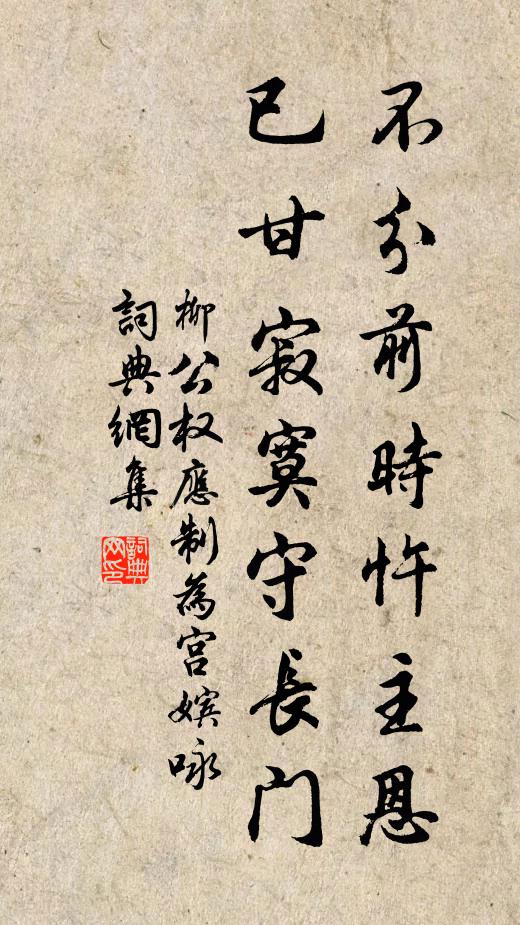 不分前時忤主恩
已甘寂寞守長门
柳公权應制為宫嬪咏
詞典網集
詞典网印